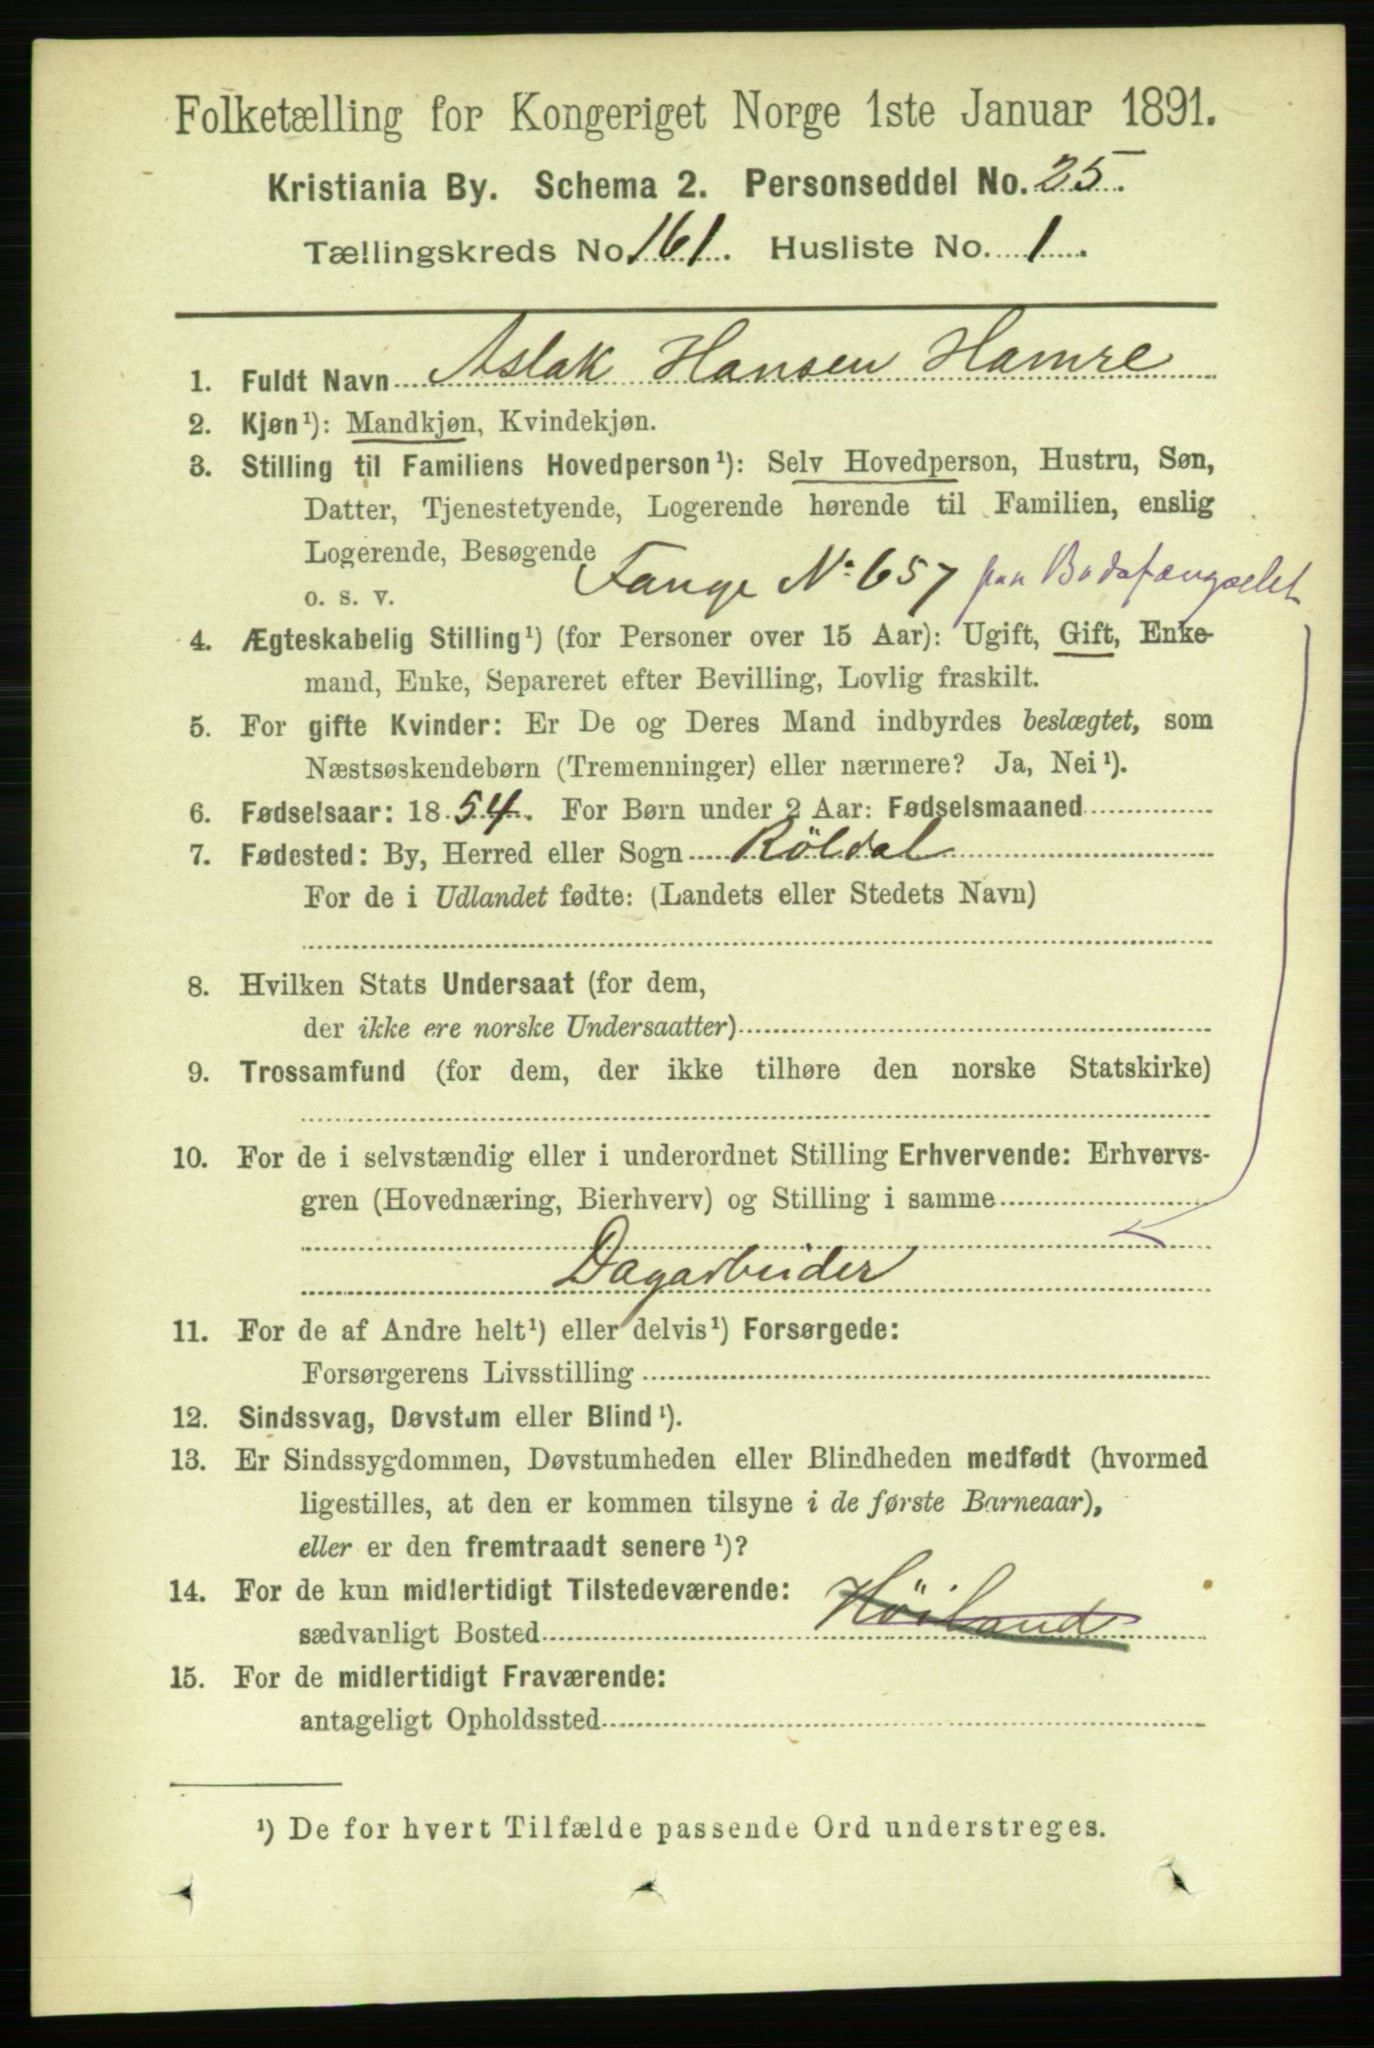 Folketælling for Kongeriget Norge 1ste Januar 1891.
Kristiania By. Schema 2. Personseddel No. 25.
Tællingskreds No. 161. Husliste No. 1.
1. Fuldt Navn Aslak Hansen Hamre
2. Kjøn¹): Mandkjøn, Kvindekjøn.
3. Stilling til Familiens Hovedperson¹): Selv Hovedperson, Hustru, Søn,
Datter, Tjenestetyende, Logerende hørende til Familien, enslig
Logerende, Besøgende
o. s. v. Fange No. 657 paa Bodsfængselet
4. Ægteskabelig Stilling¹) (for Personer over 15 Aar): Ugift, Gift, Enke-
mand, Enke, Separeret efter Bevilling, Lovlig fraskilt.
5. For gifte Kvinder: Er De og Deres Mand indbyrdes beslægtet, som
Næstsøskendebørn (Tremenninger) eller nærmere? Ja, Nei¹).
6. Fødselsaar: 1854. For Børn under 2 Aar: Fødselsmaaned
7. Fødested: By, Herred eller Sogn Röldal
For de i Udlandet fødte: (Landets eller Stedets Navn)
8. Hvilken Stats Undersaat (for dem,
der ikke ere norske Undersaatter)
9. Trossamfund (for dem, der ikke tilhøre den norske Statskirke)
10. For de i selvstændig eller i underordnet Stilling Erhvervende: Erhvervs-
gren (Hovednæring, Bierhverv) og Stilling i samme
Dagarbeider
11. For de af Andre helt¹) eller delvis¹) Forsørgede:
Forsørgerens Livsstilling
12. Sindssvag, Døvstum eller Blind¹).
13. Er Sindssygdommen, Døvstumheden eller Blindheden medfødt (hvormed
ligestilles, at den er kommen tilsyne i de første Barneaar),
eller er den fremtraadt senere¹)?
14. For de kun midlertidigt Tilstedeværende:
sædvanligt Bosted Höiland
15. For de midlertidigt Fraværende:
antageligt Opholdssted
¹) De for hvert Tilfælde passende Ord understreges.